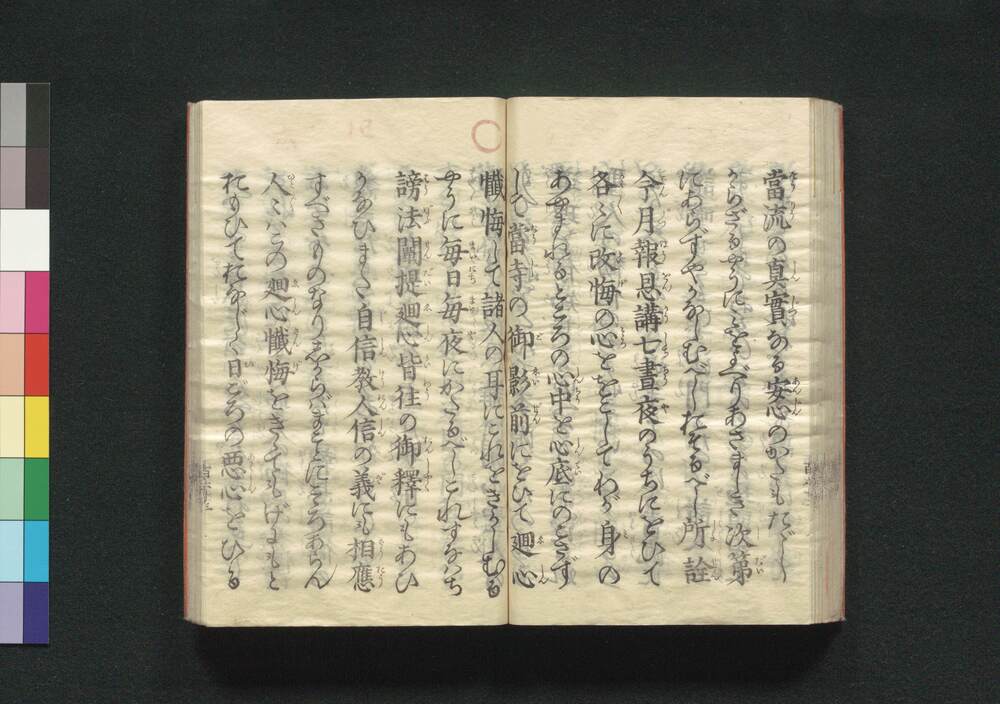 當流の真實なる安心のかたもたゞし
からざるやうにをよべりあさましき次第
にあらずやかなしむべしおそるべし所詮
今月報恩講七晝夜のうちにをひて
各々に改悔の心ををこしてわが身の
あやまれるところの心中を心底にのこさず
して當寺の御影前にをひて廻心
懺悔して諸人の耳にこれをきかしむる
やうに毎日毎夜にかたるべしこれすなはち
謗法闡提廻心皆往の御釋にもあひ
かなひまた自信教人信の義にも相應
すべきものなりしからばまことにこころあらん
人々はこの廻心懺悔をきゝてもげにもと
おもひておなじく日ごろの悪心をひる